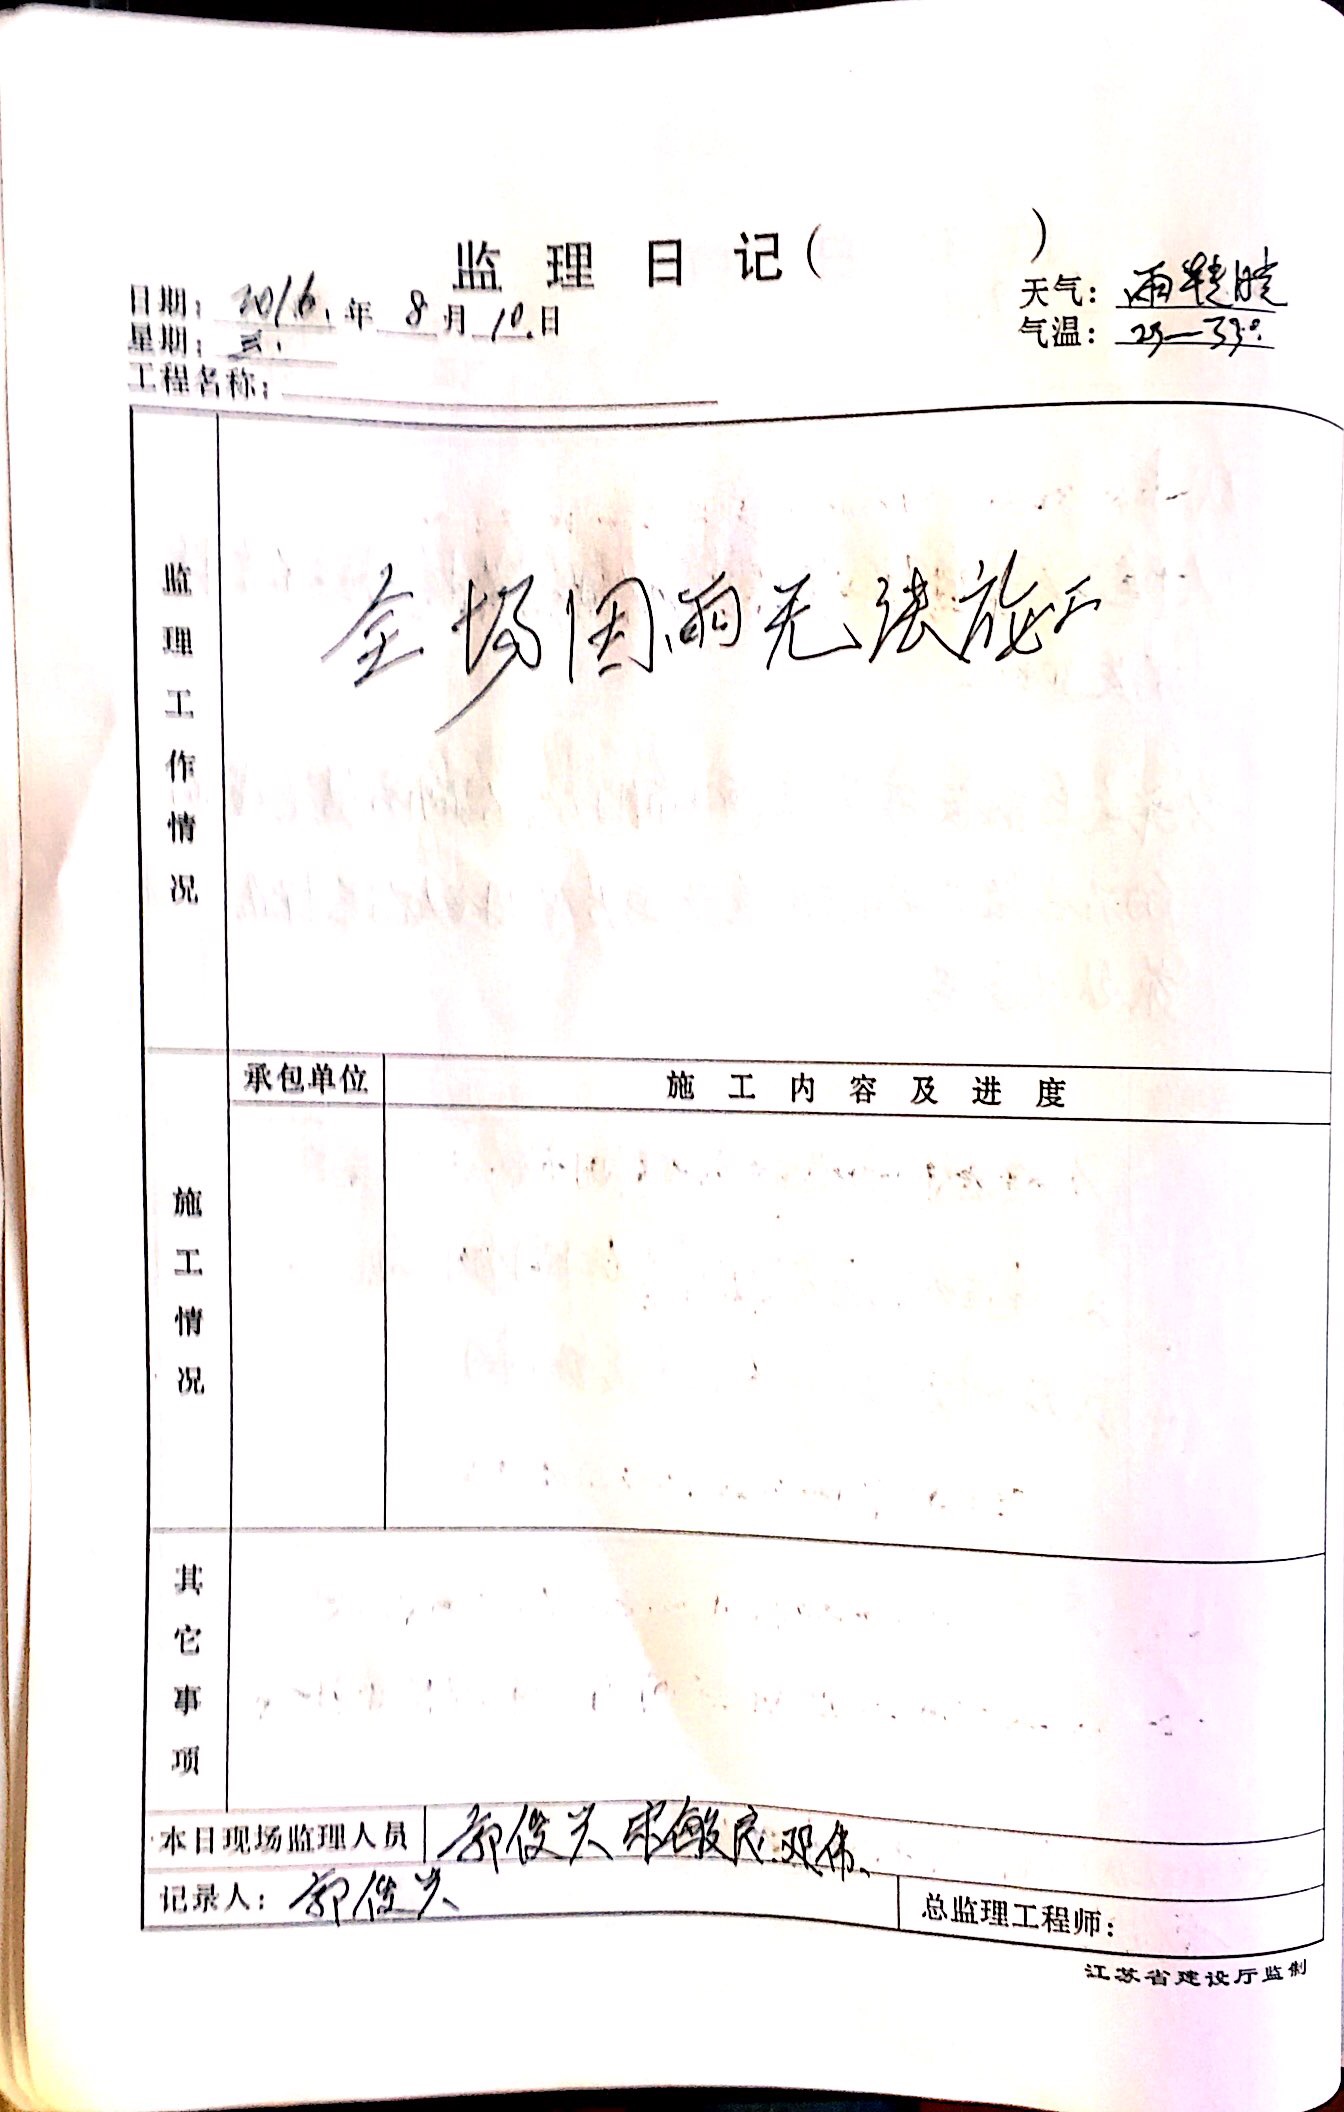 监理日记( )
日期：2016.年8月10.日
天气：雨转晴
星期：三.
气温：25—33°
工程名称：
监理工作情况
全场因雨无法施工
承包单位
施工内容及进度
施工情况
其它事项
本日现场监理人员 郭俊兴
记录人：郭俊兴
总监理工程师：
江苏省建设厅监制